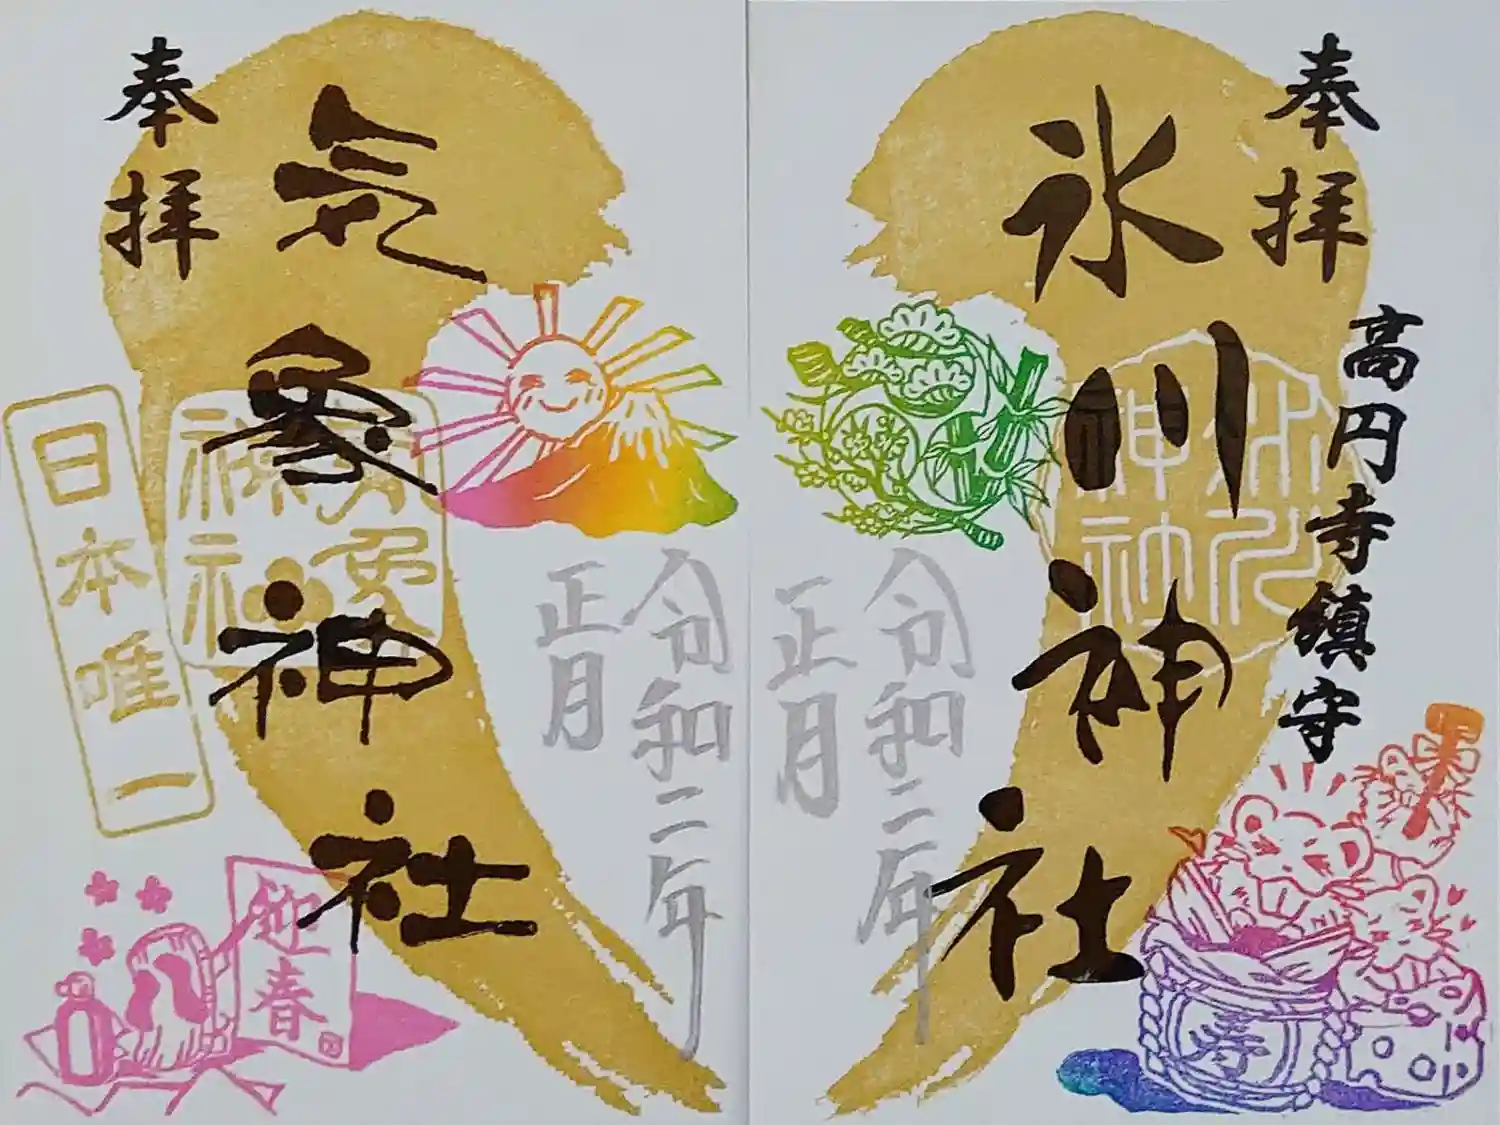 奉拝
高円寺鎮守
氷川神社
氷川神社
令和二年
正月
寿
令和二年
正月
気象神社
気象神社
奉拝
日本唯一
迎春